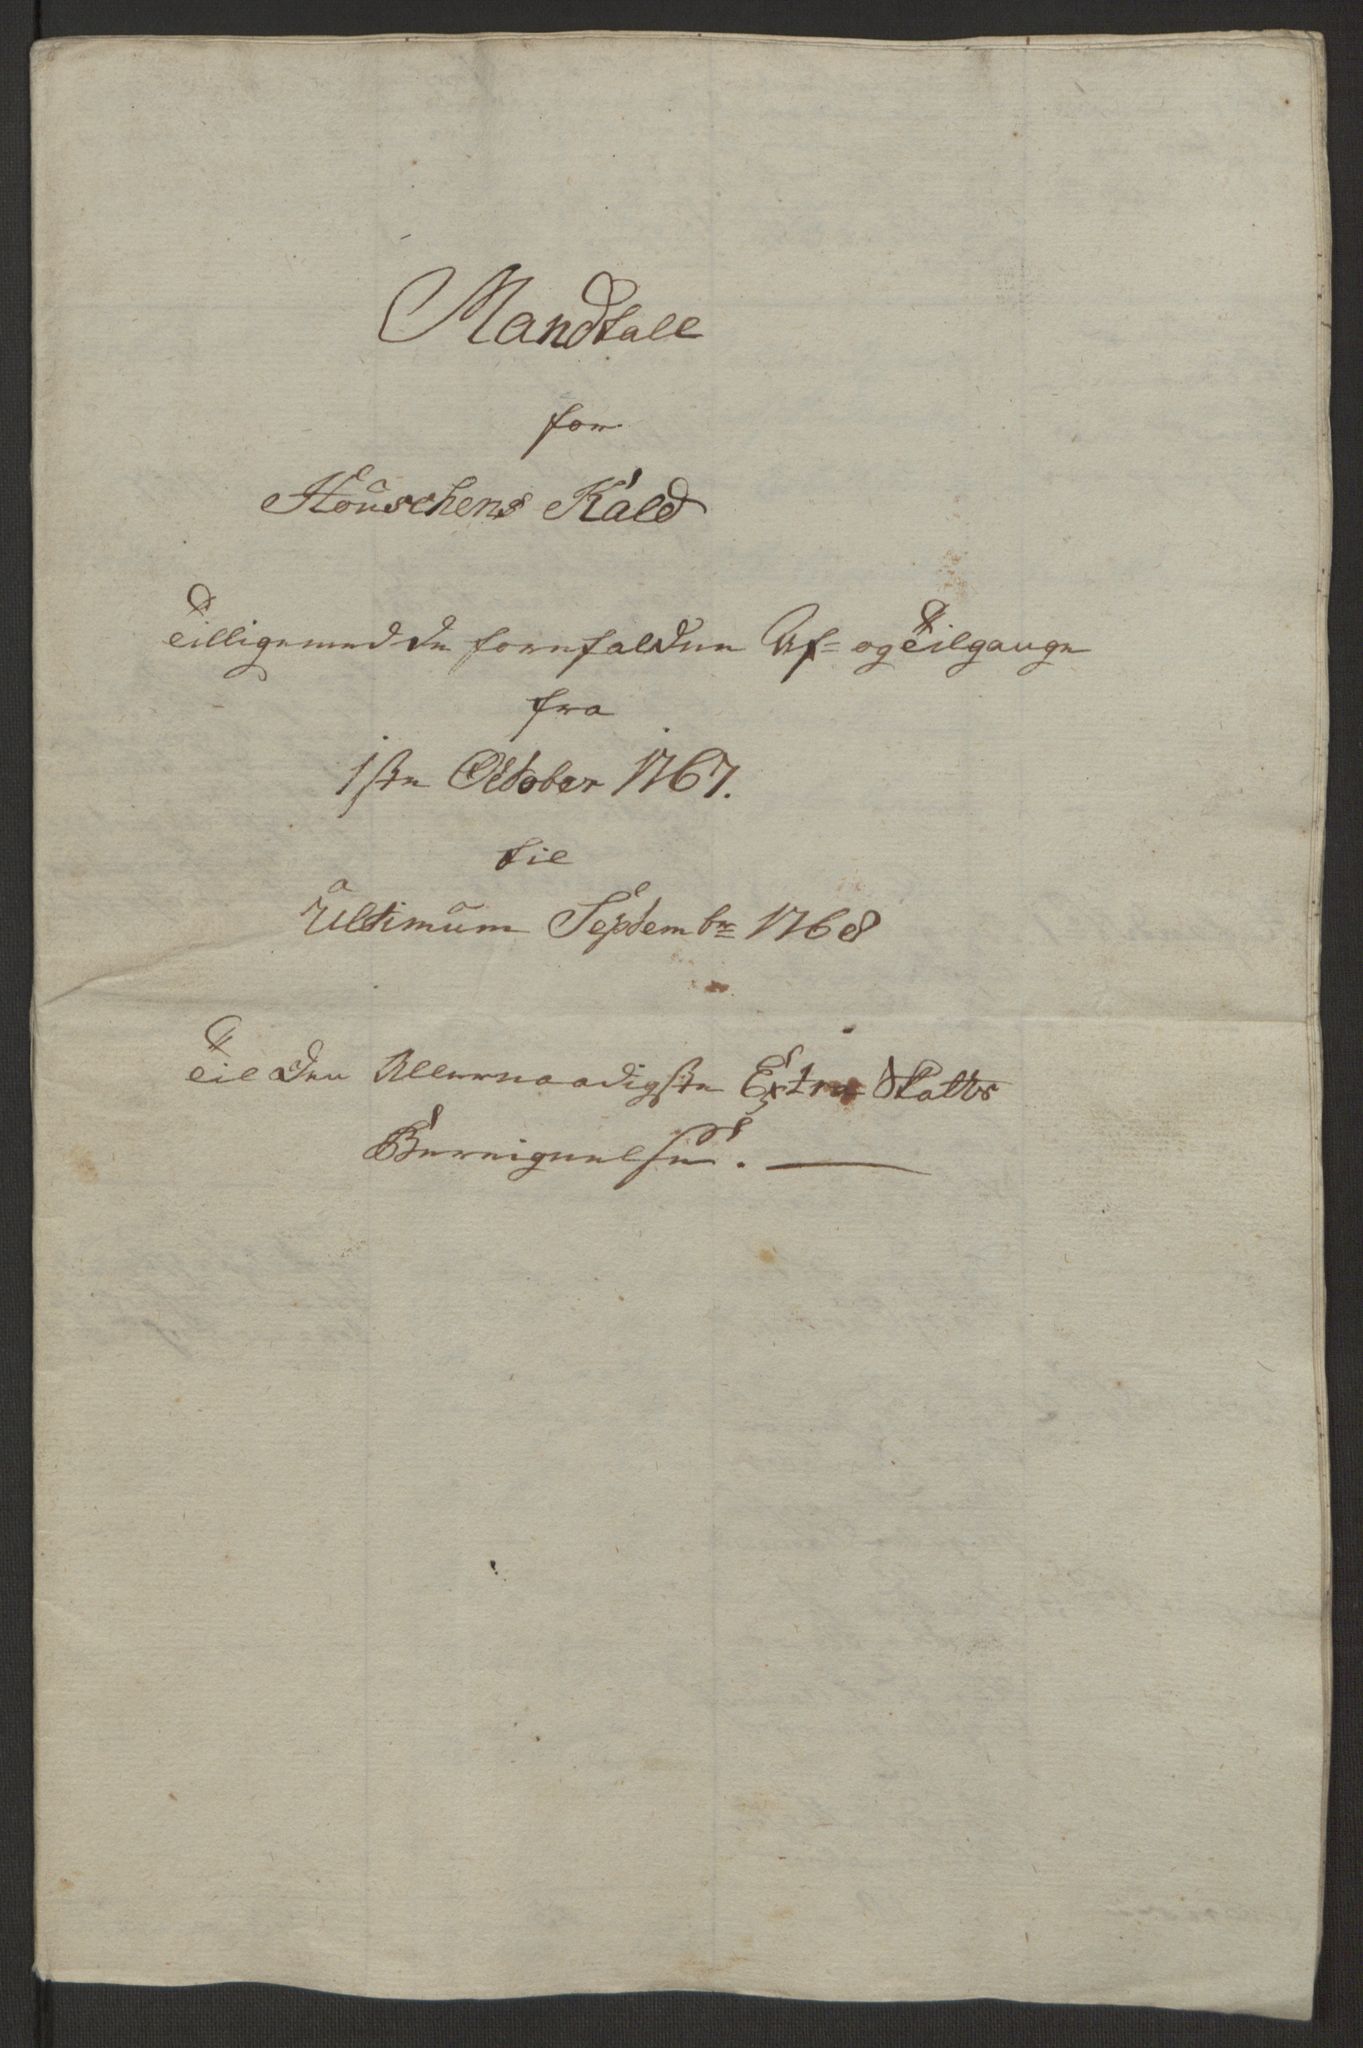 Mandtall
for
Höuschens Kald
Tilligemed de forefaldne Af- og Tilgange
fra
1ste October 1767.
til
Ultimum Septembr 1768
Til den Allernaadigste Extra Skatts
Bereignelse.